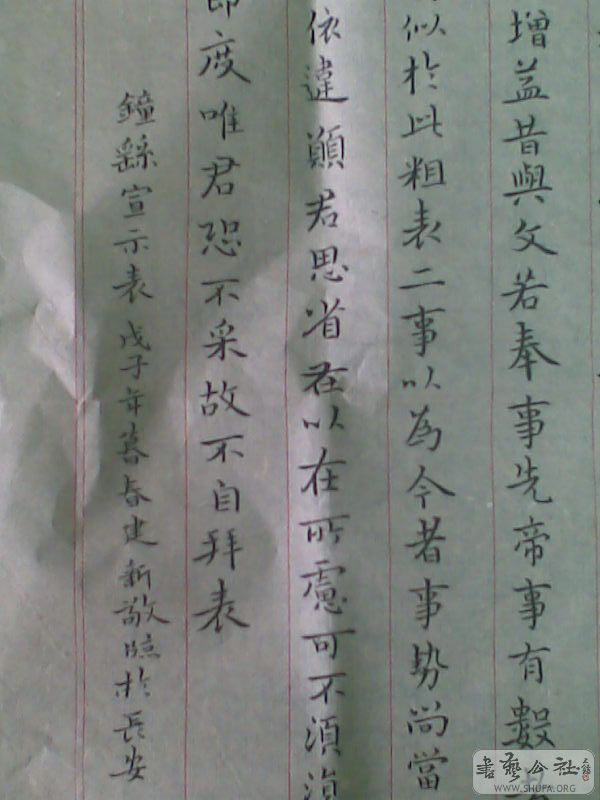 增益昔與文若奉事先帝事有數
似於此粗表二事以為今者事势尚當
依違願君思省若以在所慮可不須
即度唯君恐不采故不自拜表
鐘繇宣示表 戊子年暮春建新敬臨於長安
書藝公社
WWW.SHUFA.ORG